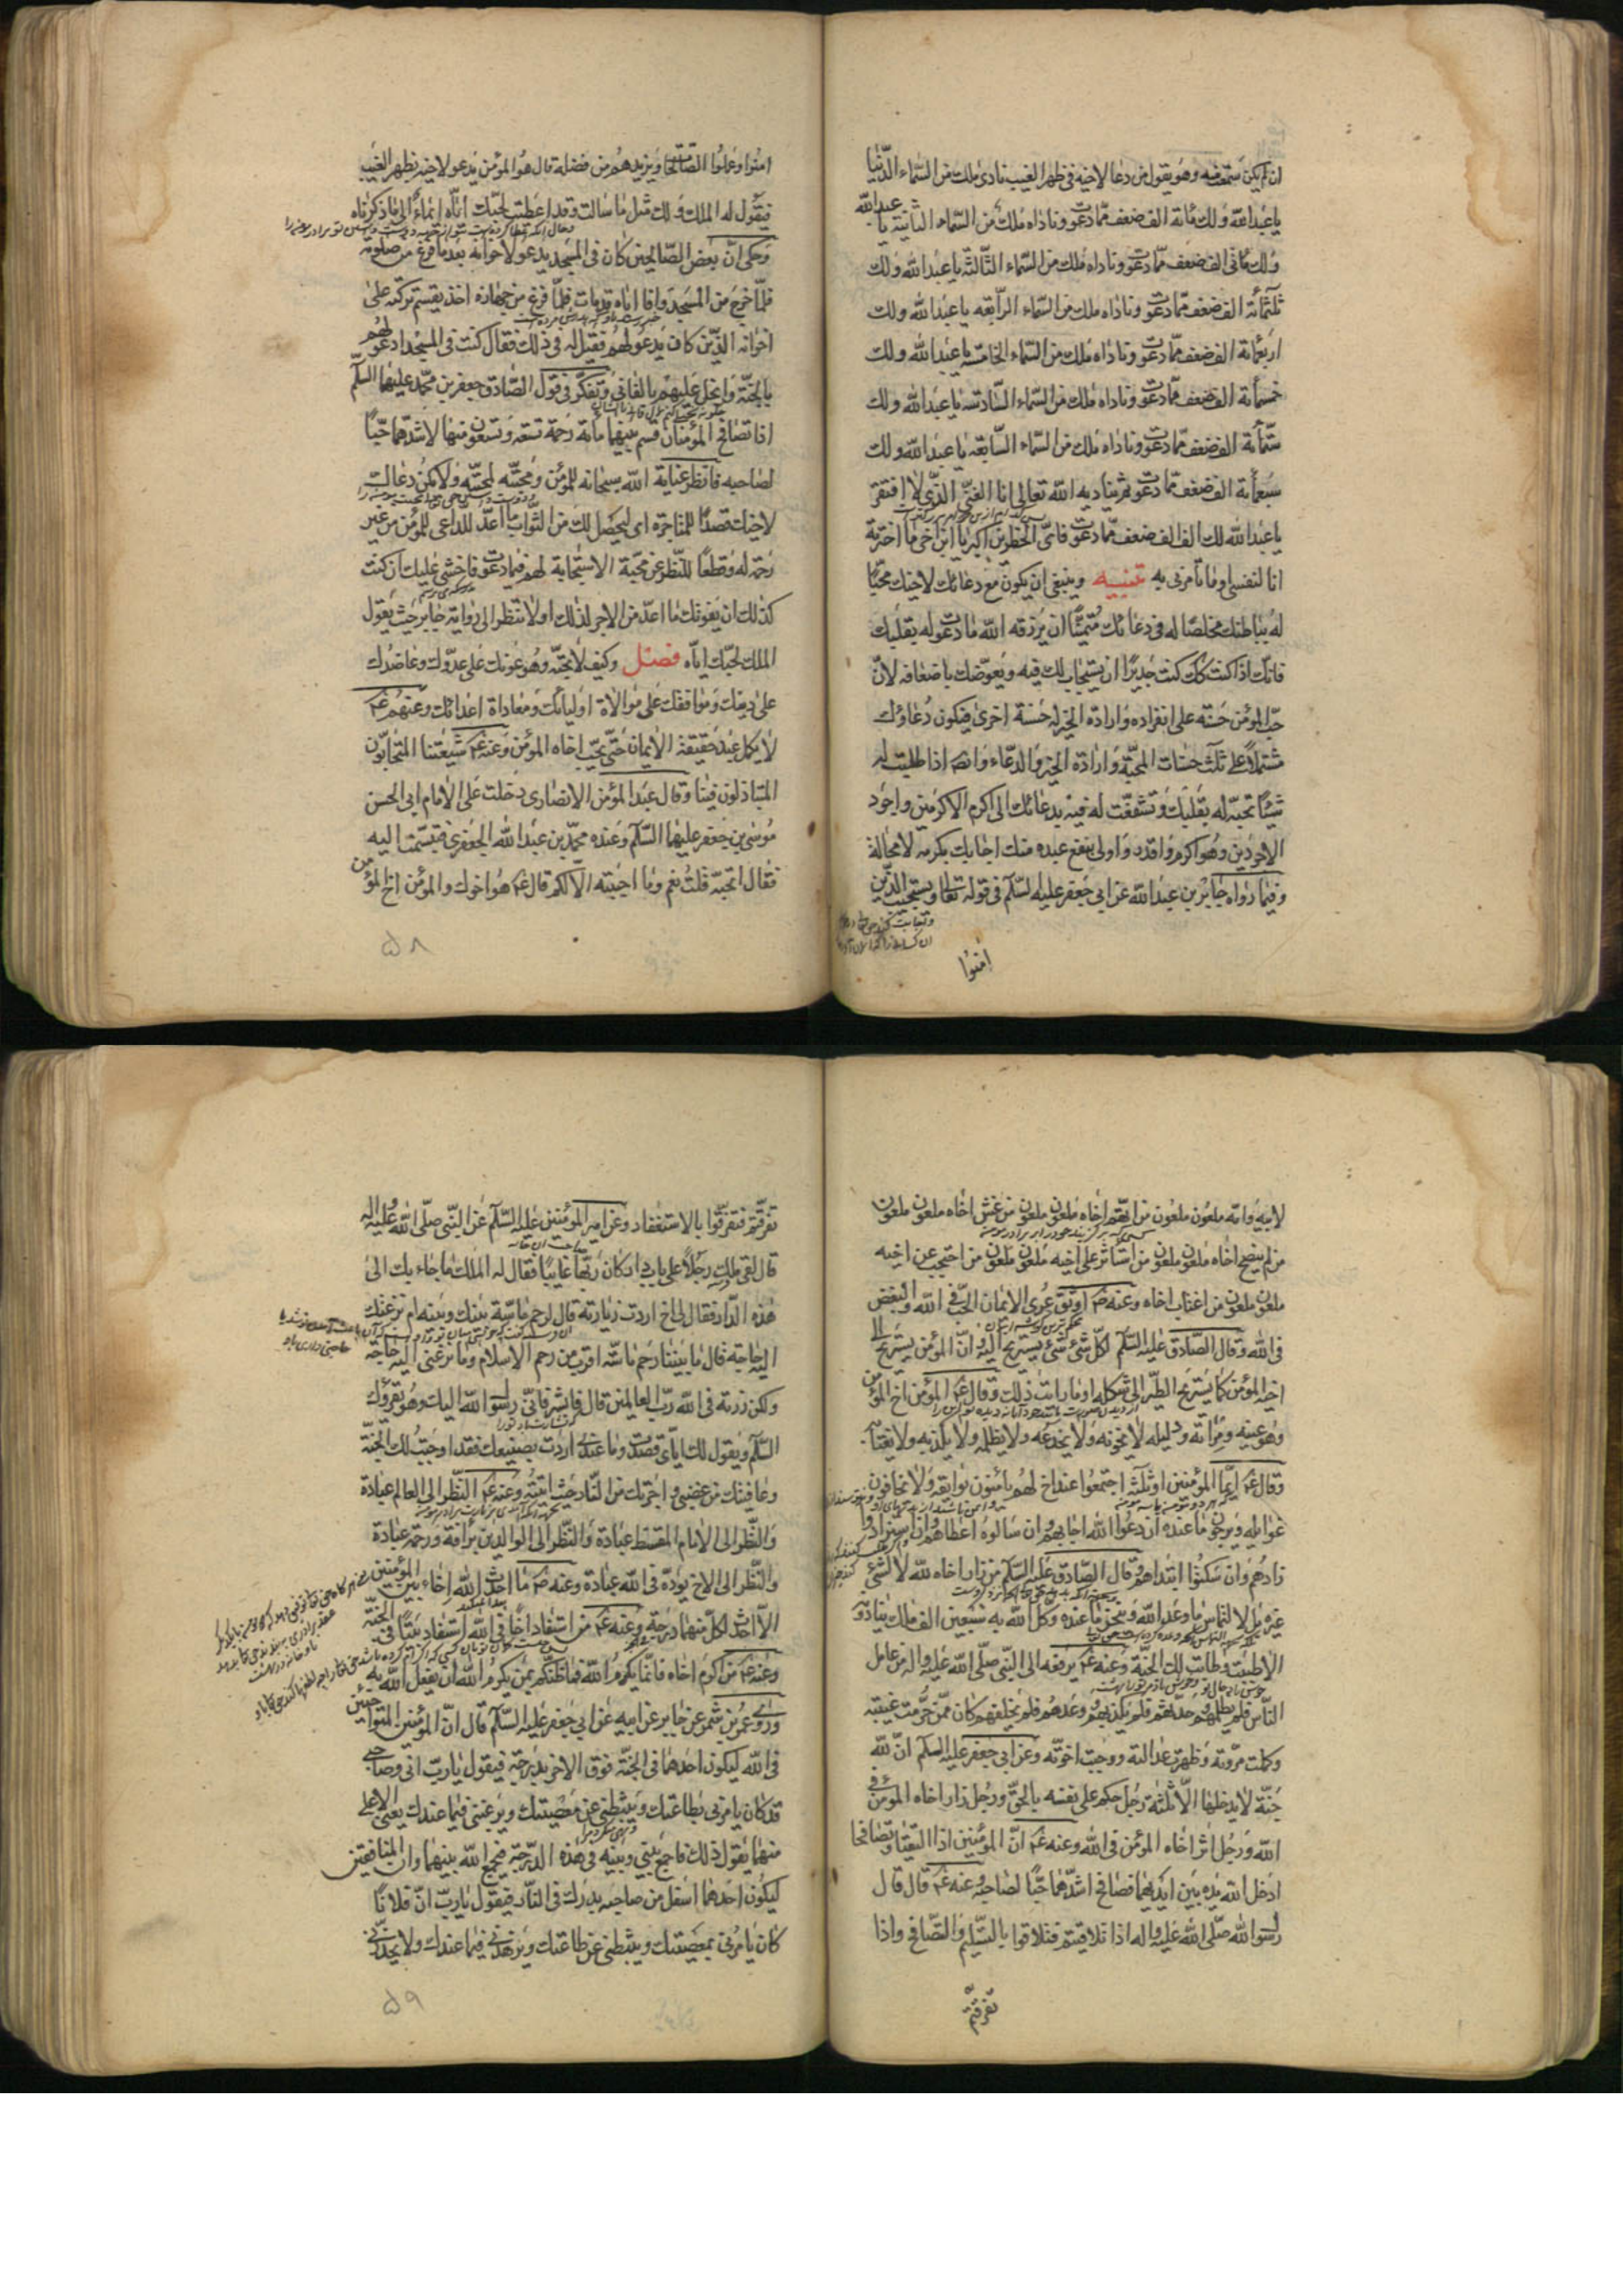 ان لم يكن سمعته وهو يقول من دعا لاخيه في ظهر الغيب نادى ملك من السماء الدنيا
يا عبد الله ولك مائة الف ضعف مما دعوت وناداه ملك من السماء الثانية يا عبد الله
ولك مائتى الف ضعف مما دعوت وناداه ملك من السماء الثالثة يا عبد الله ولك
ثلثمائة الف ضعف مما دعوت وناداه ملك من السماء الرابعه يا عبد الله ولك
اربعمائة الف ضعف مما دعوت وناداه ملك من السماء الخامسة يا عبد الله ولك
خمسمائة الف ضعف مما دعوت وناداه ملك من السماء السادسة يا عبد الله ولك
ستمائة الف ضعف مما دعوت وناداه ملك من السماء السابعة يا عبد الله ولك
سبعمائة الف ضعف مما دعوت ثم يناديه الله تعالى انا الغنى الذى لا افتقر
يا عبد الله لك الف الف ضعف مما دعوت فاى الخطرين اكبر يا ابن اخى ما اخترته
انا لنفسى او ما تأمرنى به تنبيه وينبغى ان يكون مع دعائك لاخيك محبّا
له بباطنك مخلصا له فى دعائك متمنيا ان يرزقه الله ما دعوت له بقلبك
فانك اذا كنت كك كنت جديرا ان يستجاب لك فيه ويعوضك باضعافه لان
حب المؤمن حسنة على انفراده وارادة الخير له حسنة اخرى فيكون دعاؤك
مشتملا على ثلث حسنات المحبة وارادة الخير والدعاء وايضا اذا طلبت له
شيئا تحبه له بقلبك وتشفعت له فيه بدعائك الى اكرم الاكرمين واجود
الاجودين وهو اكرم واقدر واولى بنفع عبده منك اجابك بكرمه لا محالة
وفيما رواه جابر بن عبد الله عن ابي جعفر عليه السلم فى قوله تعالى ويستجيب الذين
امنوا
امنوا وعملوا الصالحات ويزيدهم من فضله قال هو المؤمن يدعو لاخيه بظهر الغيب
فيقول له الملك ولك مثل ما سالت وقد اعطيت لحبك اياه ايماء الى ما ذكرناه
وحكى ان بعض الصالحين كان فى المسجد يدعو لاخوانه بعد ما فرغ من صلوته
فلما خرج من المسجد وافا اباه قد مات فلما فرغ من جهازه اخذ يقسم تركته على
اخوانه الذين كان يدعو لهم فقيل له فى ذلك فقال كنت فى المسجد ادعو لهم
بالجنة وابخل عليهم بالفانى وتفكر فى قول الصادق جعفر بن محمد عليهما السلم
اذا تصافح المؤمنان قسم بينهما مائة رحمة تسعة وتسعون منها لاشدهما حبا
لصاحبه فانظر عناية الله سبحانه للمؤمن ومحبته لمحبته ولا يكن دعائك
لاخيك قصدا للمتاجرة اى ليحصل لك من الثواب ما اعد للداعى للمؤمن من غير
رحمة له وقطعا للنظر عن محبة الاستجابة لهم فيما دعوت فاخشى عليك ان كنت
كذلك ان يفوتك ما اعد من الاجر لذلك اولا تنظر الى رواية جابر حيث يقول
الملك لحبك اياه فصل وكيف لا تحبه وهو عونك على عدوك وعاضدك
على دينك وموافقك على موالاة اوليائك ومعاداة اعدائك وعنهم ع
لا يكمل عبد حقيقة الايمان حتى يحب اخاه المؤمن وعنه ع شيعتنا المتحابون
المتباذلون فينا وقال عبد المؤمن الانصارى دخلت على الامام ابى الحسن
موسى بن جعفر عليهما السلم وعنده محمد بن عبد الله الجعفرى فتبسمت اليه
فقال اتحبه قلت نعم وما احببته الا لكم قال ع هو اخوك والمؤمن اخ المؤمن
۵۸
لابيه وامه ملعون ملعون من اتهم اخاه ملعون ملعون من غش اخاه ملعون ملعون
من لم ينصح اخاه ملعون ملعون من استاثر على اخيه ملعون ملعون من احتجب عن اخيه
ملعون ملعون من اغتاب اخاه وعنه ص اوثق عرى الايمان الحب فى الله والبغض
فى الله وقال الصادق عليه السلم لكل شئ شئ يستريح اليه وان المؤمن يستريح الى
اخيه المؤمن كما يستريح الطير الى شكله او ما رايت ذلك وقال ع المؤمن اخ المؤمن
وهو عينه ومرآته ودليله لا يخونه ولا يخدعه ولا يظلمه ولا يكذبه ولا يغتابه
وقال ع ايما المؤمنين او ثلثه اجتمعوا عند اخ لهم يأمنون بوايقه ولا يخافون
غوايله ويرجون ما عنده ان دعوا الله اجابهم وان سالوه اعطاهم وان استزادوا
زادهم وان سكتوا ابتداهم وقال الصادق عليه السلم من زار اخاه لله لا لشئ
غيره بل لالتماس ما وعد الله وتنجز ما عنده وكل الله به سبعين الف ملك ينادونه
الا طبت وطابت لك الجنة وعنه ع يرفعه الى النبى صلى الله عليه واله من عامل
الناس فلم يظلمهم وحدثهم فلم يكذبهم ووعدهم فلم يخلفهم كان ممن حرمت غيبته
وكملت مروته وظهرت عدالته ووجبت اخوته وعن ابي جعفر عليه السلم ان لله
جنة لا يدخلها الا ثلثة رجل حكم على نفسه بالحق ورجل زار اخاه المؤمن فى
الله ورجل اثر اخاه المؤمن فى الله وعنه ع ان المؤمنين اذا التقيا وتصافحا
ادخل الله يده بين ايديهما فصافح اشدهما حبا لصاحبه وعنه ع قال قال
رسول الله صلى الله عليه واله اذا تلاقيتم فتلاقوا بالتسليم والتصافح واذا
تفرقتم
تفرقتم فتفرقوا بالاستغفار وعن امير المؤمنين عليه السلم عن النبى صلى الله عليه واله
قال لقى ملك رجلا على باب دار كان ربها غايبا فقال له الملك ما جاء بك الى
هذه الدار فقال لى اخ اردت زيارته قال لرحم ماسة بينك وبينه ام نزعتك
اليه حاجة قال ما بيننا رحم ماسه اقرب من رحم الاسلام وما نزعنى اليه حاجة
ولكن زرته فى الله رب العالمين قال فابشر فانى رسول الله اليك وهو يقرؤك
السلم ويقول لك اياى قصدت وما عندى اردت بصنيعك فقد اوجبت لك الجنة
وعافيتك من غضبى واجرتك من النار حيث اتيته وعنه ع النظر الى العالم عبادة
والنظر الى الامام المقسط عبادة والنظر الى الوالدين برافة ورحمة عبادة
والنظر الى الاخ يوده فى الله عبادة وعنه ص ما احدث الله اخاء بين المؤمنين
الا احدث لكل منهما درجة وعنه ع من استفاد اخا فى الله استفاد بيتا فى الجنة
وعنه ع من اكرم اخاه فانما يكرم الله فما ظنكم بمن يكرم الله ان يفعل الله به
وروى عمرو بن شمر عن جابر عن ابيه عن ابي جعفر عليه السلم قال ان المؤمنين المتواخيين
فى الله ليكون احدهما فى الجنة فوق الاخر بدرجة فيقول يا رب انى وصاحبى
قد كان يامرنى بطاعتك ويثبطنى عن معصيتك ويرغبنى فيما عندك يعنى الاعلى
منهما يقول ذلك فاجمع بينى وبينه فى هذه الدرجة فيجمع الله بينهما وان المنافقين
ليكون احدهما اسفل من صاحبه بدرك فى النار فيقول يا رب ان فلانا
كان يامرنى بمعصيتك ويثبطنى عن طاعتك ويزهدنى فيما عندك ولا يحذرنى
۵۹